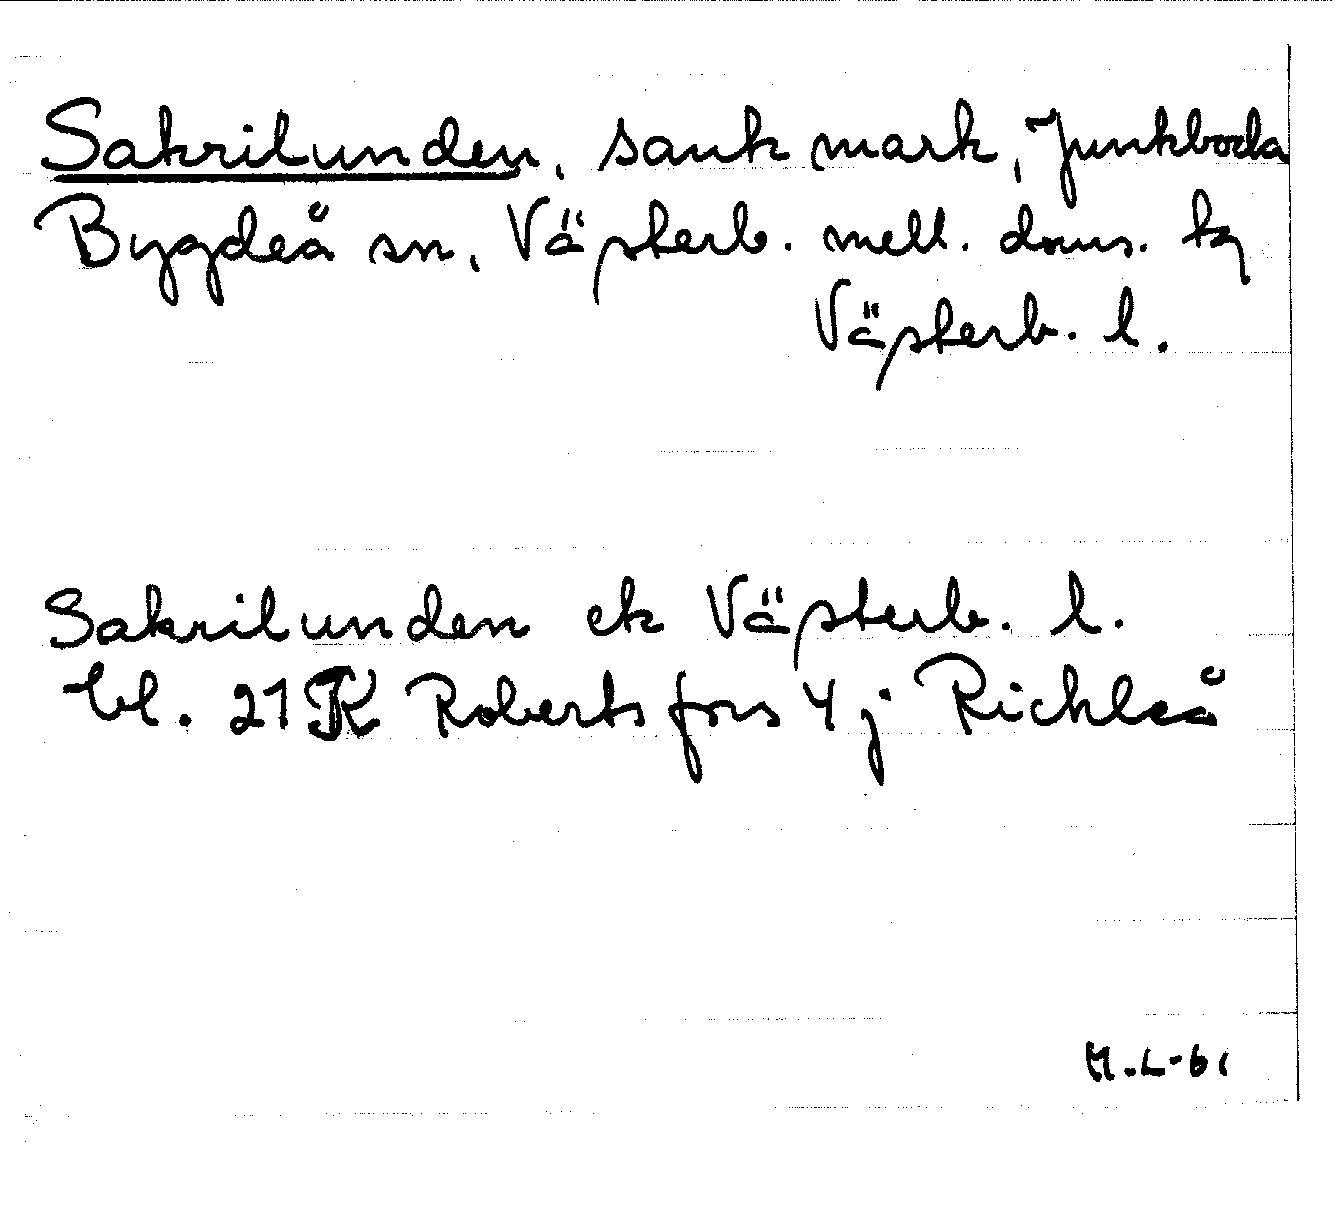 Sakrilunden, sank mark, Junkboda
Bygdeå sn, Västerb. mell. doms. tg
Västerb. l.
Sakrilunden ek Västerb. l.
bl. 21 K Robertsfors 4 j Rickleå
H.L-61